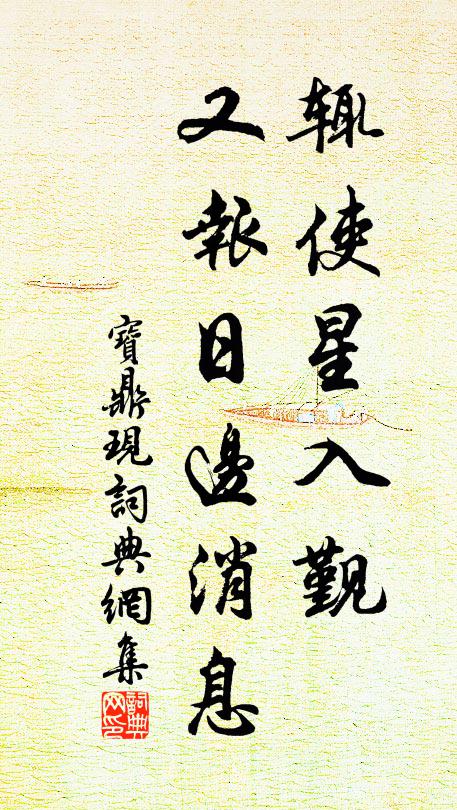 輙使星入覲
又報日邊消息
寶鼎現詞典網集
詞典網印